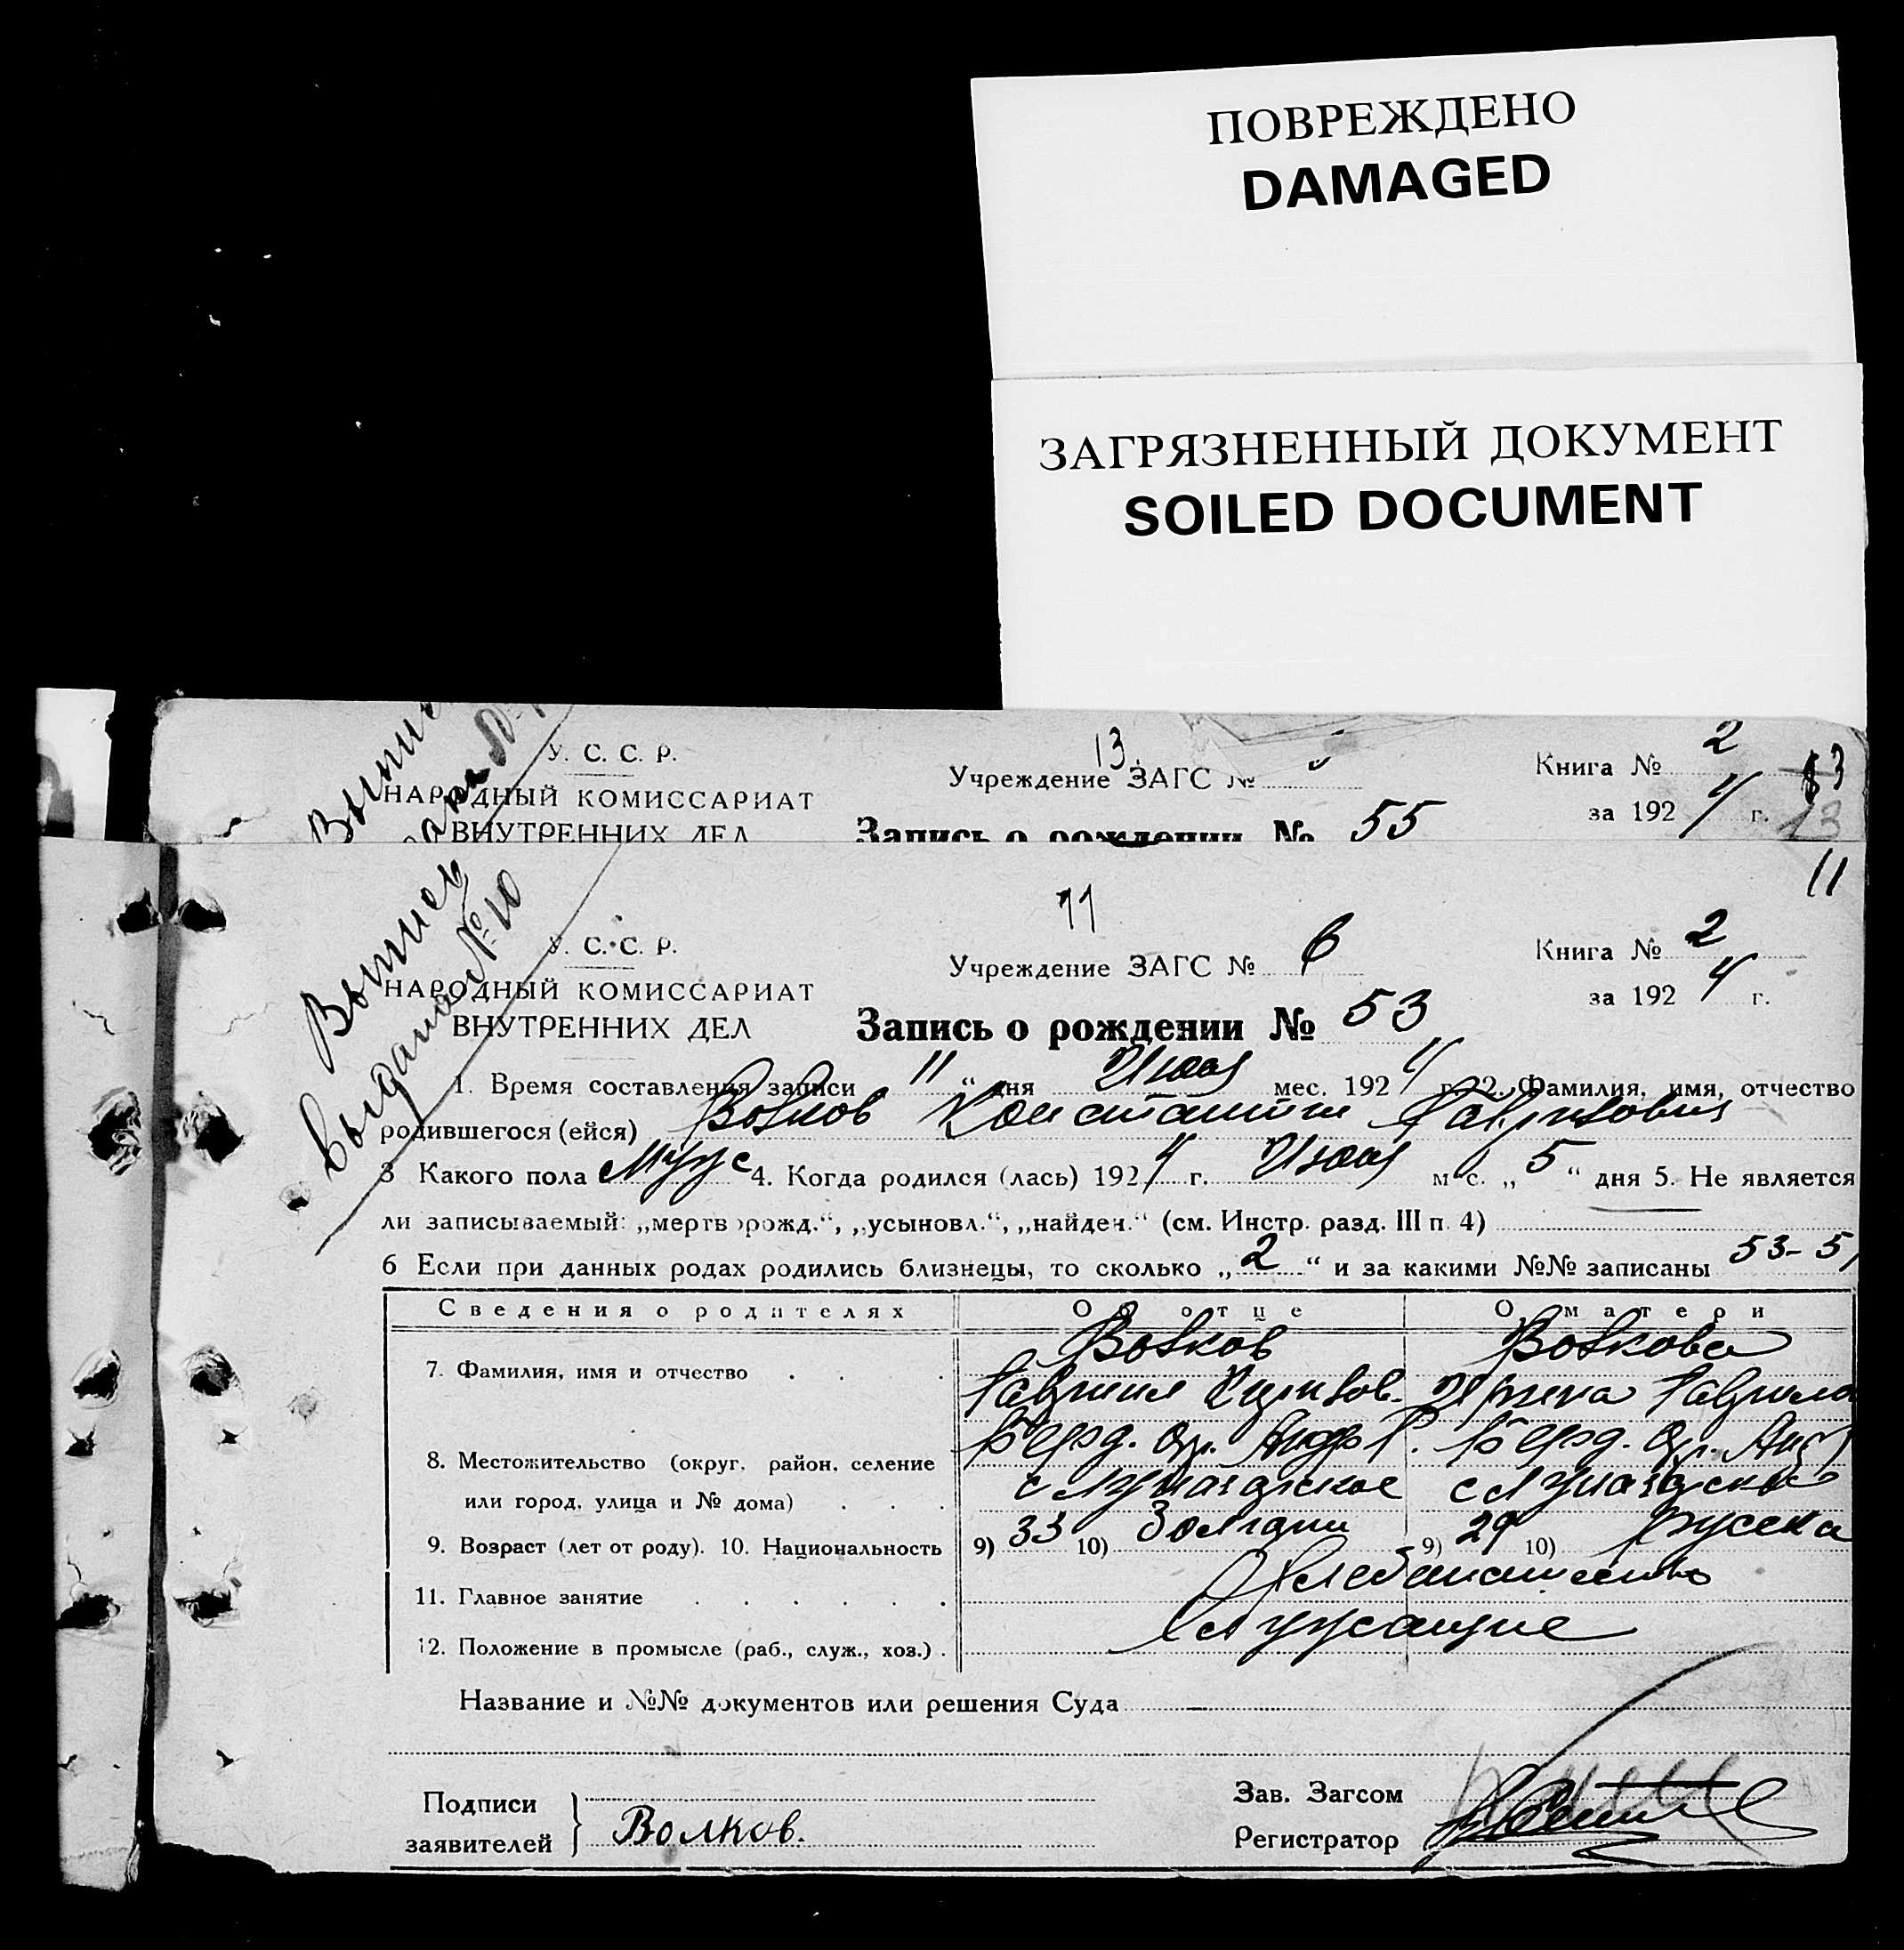 ПОВРЕЖДЕНО
DAMAGED
ЗАГРЯЗНЕННЫЙ ДОКУМЕНТ
SOILED DOCUMENT
У. С. С. Р.
НАРОДНЫЙ КОМИССАРИАТ
ВНУТРЕННИХ ДЕЛ
13.
Учреждение ЗАГС №
Запись о рождении № 55
Книга № 2
за 1924 г.
13
11
Выпись
выдана № 10
У. С. С. Р.
НАРОДНЫЙ КОМИССАРИАТ
ВНУТРЕННИХ ДЕЛ
11
Учреждение ЗАГС № 6
Запись о рождении № 53
Книга № 2
за 1924 г.
1. Время составления записи 11 " дня Июля мес. 1924 г. 2. Фамилия, имя, отчество
родившегося (ейся) Волков Константин Гаврилович
3 Какого пола Муж 4. Когда родился (лась) 1924 г. Июля мес. „ 5 " дня 5. Не является
ли записываемый: „мертворожд.", „усыновл.", „найден." (см. Инстр. разд. III п. 4)
6 Если при данных родах родились близнецы, то сколько „ 2 " и за какими №№ записаны 53-5
Сведения о родителях Об отце О матери
7. Фамилия, имя и отчество Волков Волкова
Гавриил Ирина Гаврило
8. Местожительство (округ, район, селение Берд. Окр. Андр Р. Берд. Окр. Анд
или город, улица и № дома) с Луначарское с Луначарское
9. Возраст (лет от роду). 10. Национальность 9) 33 10) Болгарин 9) 29 10) русская
11. Главное занятие Хлебопашество
12. Положение в промысле (раб., служ., хоз.)
Название и №№ документов или решения Суда
Подписи
заявителей } Волков.
Зав. Загсом
Регистратор